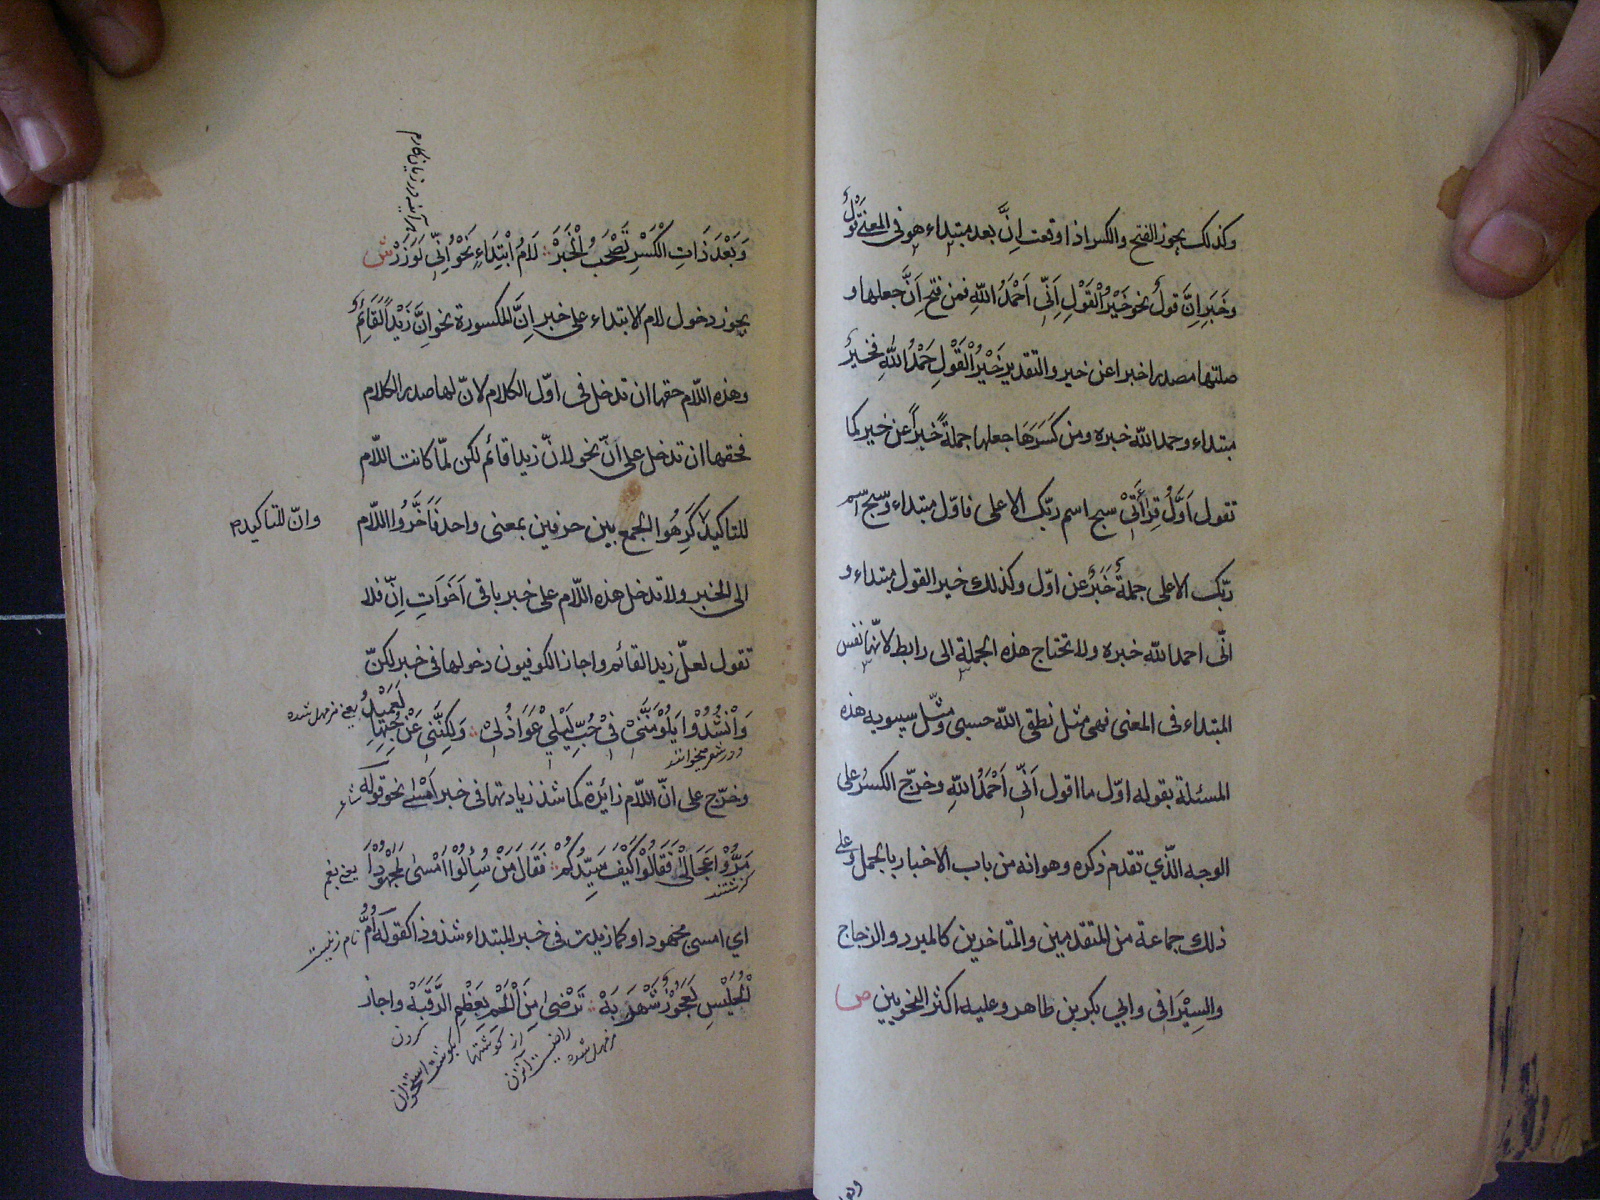 وكذلك يجوز الفتح والكسر اذا وقعت اِنَّ بعد مبتداء هو فى المعنى قَوْلٌ
وخَبَرِ اِنَّ قولٌ نحو خَيْرُ الْقَوْلِ اِنّى اَحْمَدُ اللّهِ فمن فتح اَنَّ جعلها و
صلتها مصدرا خبرا عن خير والتقدير خَيْرُ الْقَوْلِ حَمْدُ اللّهِ فخيرٌ
مبتداء وحمد اللّه خبره ومن كَسَرَهَا جعلها جملةً خبراً عن خير كما
تقول اَوَّلُ قِرَأَتىْ سبح اسم ربّك الاعلى فاوّل مبتداء وسبح اسم
ربّك الاعلى جملةٌ خَبَرٌ عن اوّل وكذلك خير القول مبتداء و
انّى احمد اللّه خبره ولا تحتاج هذه الجملة الى رابط لانّها نفس
المبتداء فى المعنى فهى مثل نطقى اللّه حسبى ومثّل سيبويه هذه
المسئلة بقوله اوّل ما اقول اَنّى اَحْمَدُ اللّهِ وخرّج الكسرُ على
الوجه الّذي تقدم ذكره وهو انه من باب الاخبار بالجمل وعلى
ذلك جماعة من المتقدمين والمتاخرين كالمبرد والزجاج
والسِيْرَافى وابي بكر بن طاهر وعليه اكثر النحويين ص
وَبَعْدَ ذَاتِ الْكَسْرِ تَصْحَبُ الْخَبَرْ لَامُ ابْتِدَاءٍ نَحْوُ اِنِّى لَوَزَرْ ش
يجوز دخول لام الابتداء على خبر اِنَّ المكسورة نحو اِنَّ زَيْداً لَقَائِمٌ
وهذه اللّام حقها ان تدخل فى اوّل الكلام لانّ لها صدر الكلام
فحقها ان تدخل على اَنّ نحو لانّ زيدا قائم لكن لمّا كانت اللّام
للتاكيد كَرِهُوا الجمع بين حرفين بمعنى واحد فَاَخَّرُوا اللّام
وانّ للتاكيد
الى الخبر ولا تدخل هذه اللّام على خبر باقى اَخَوَاتِ اِنّ فلا
تقول لعلّ زيدا لقائم واجاز الكوفيون دخولها فى خبر لكنّ
وَانْشَدُوْا يَلُوْمَنَّنِىْ فِىْ حُبِّ لَيْلى عَوَاذِلِىْ وَلكِنَّنِى مِنْ حُبِّهَا لَعَمِيْدُ
وخرّج على انّ اللّام زائرة كما شذ زيادتها فى خبر اَمْسى نحو قوله شاعر
مَرُّوْا عَجَالى فَقَالُوْا كَيْفَ سَيِّدُكُمْ فَقَالَ مَنْ سُأِلُوْا اَمْسىٰ لَمَجْهُوْدَا
اي امسى مجهودا وكما زيدت فى خبر المبتداء شذوذا كقوله اُمُّ
الْحُلَيْسِ لَعَجُوْزٌ شَهْرَبَهْ تَرْضىٰ مِنَ الْلَحْمِ بِعَظْمِ الرَّقَبَهْ واجاز